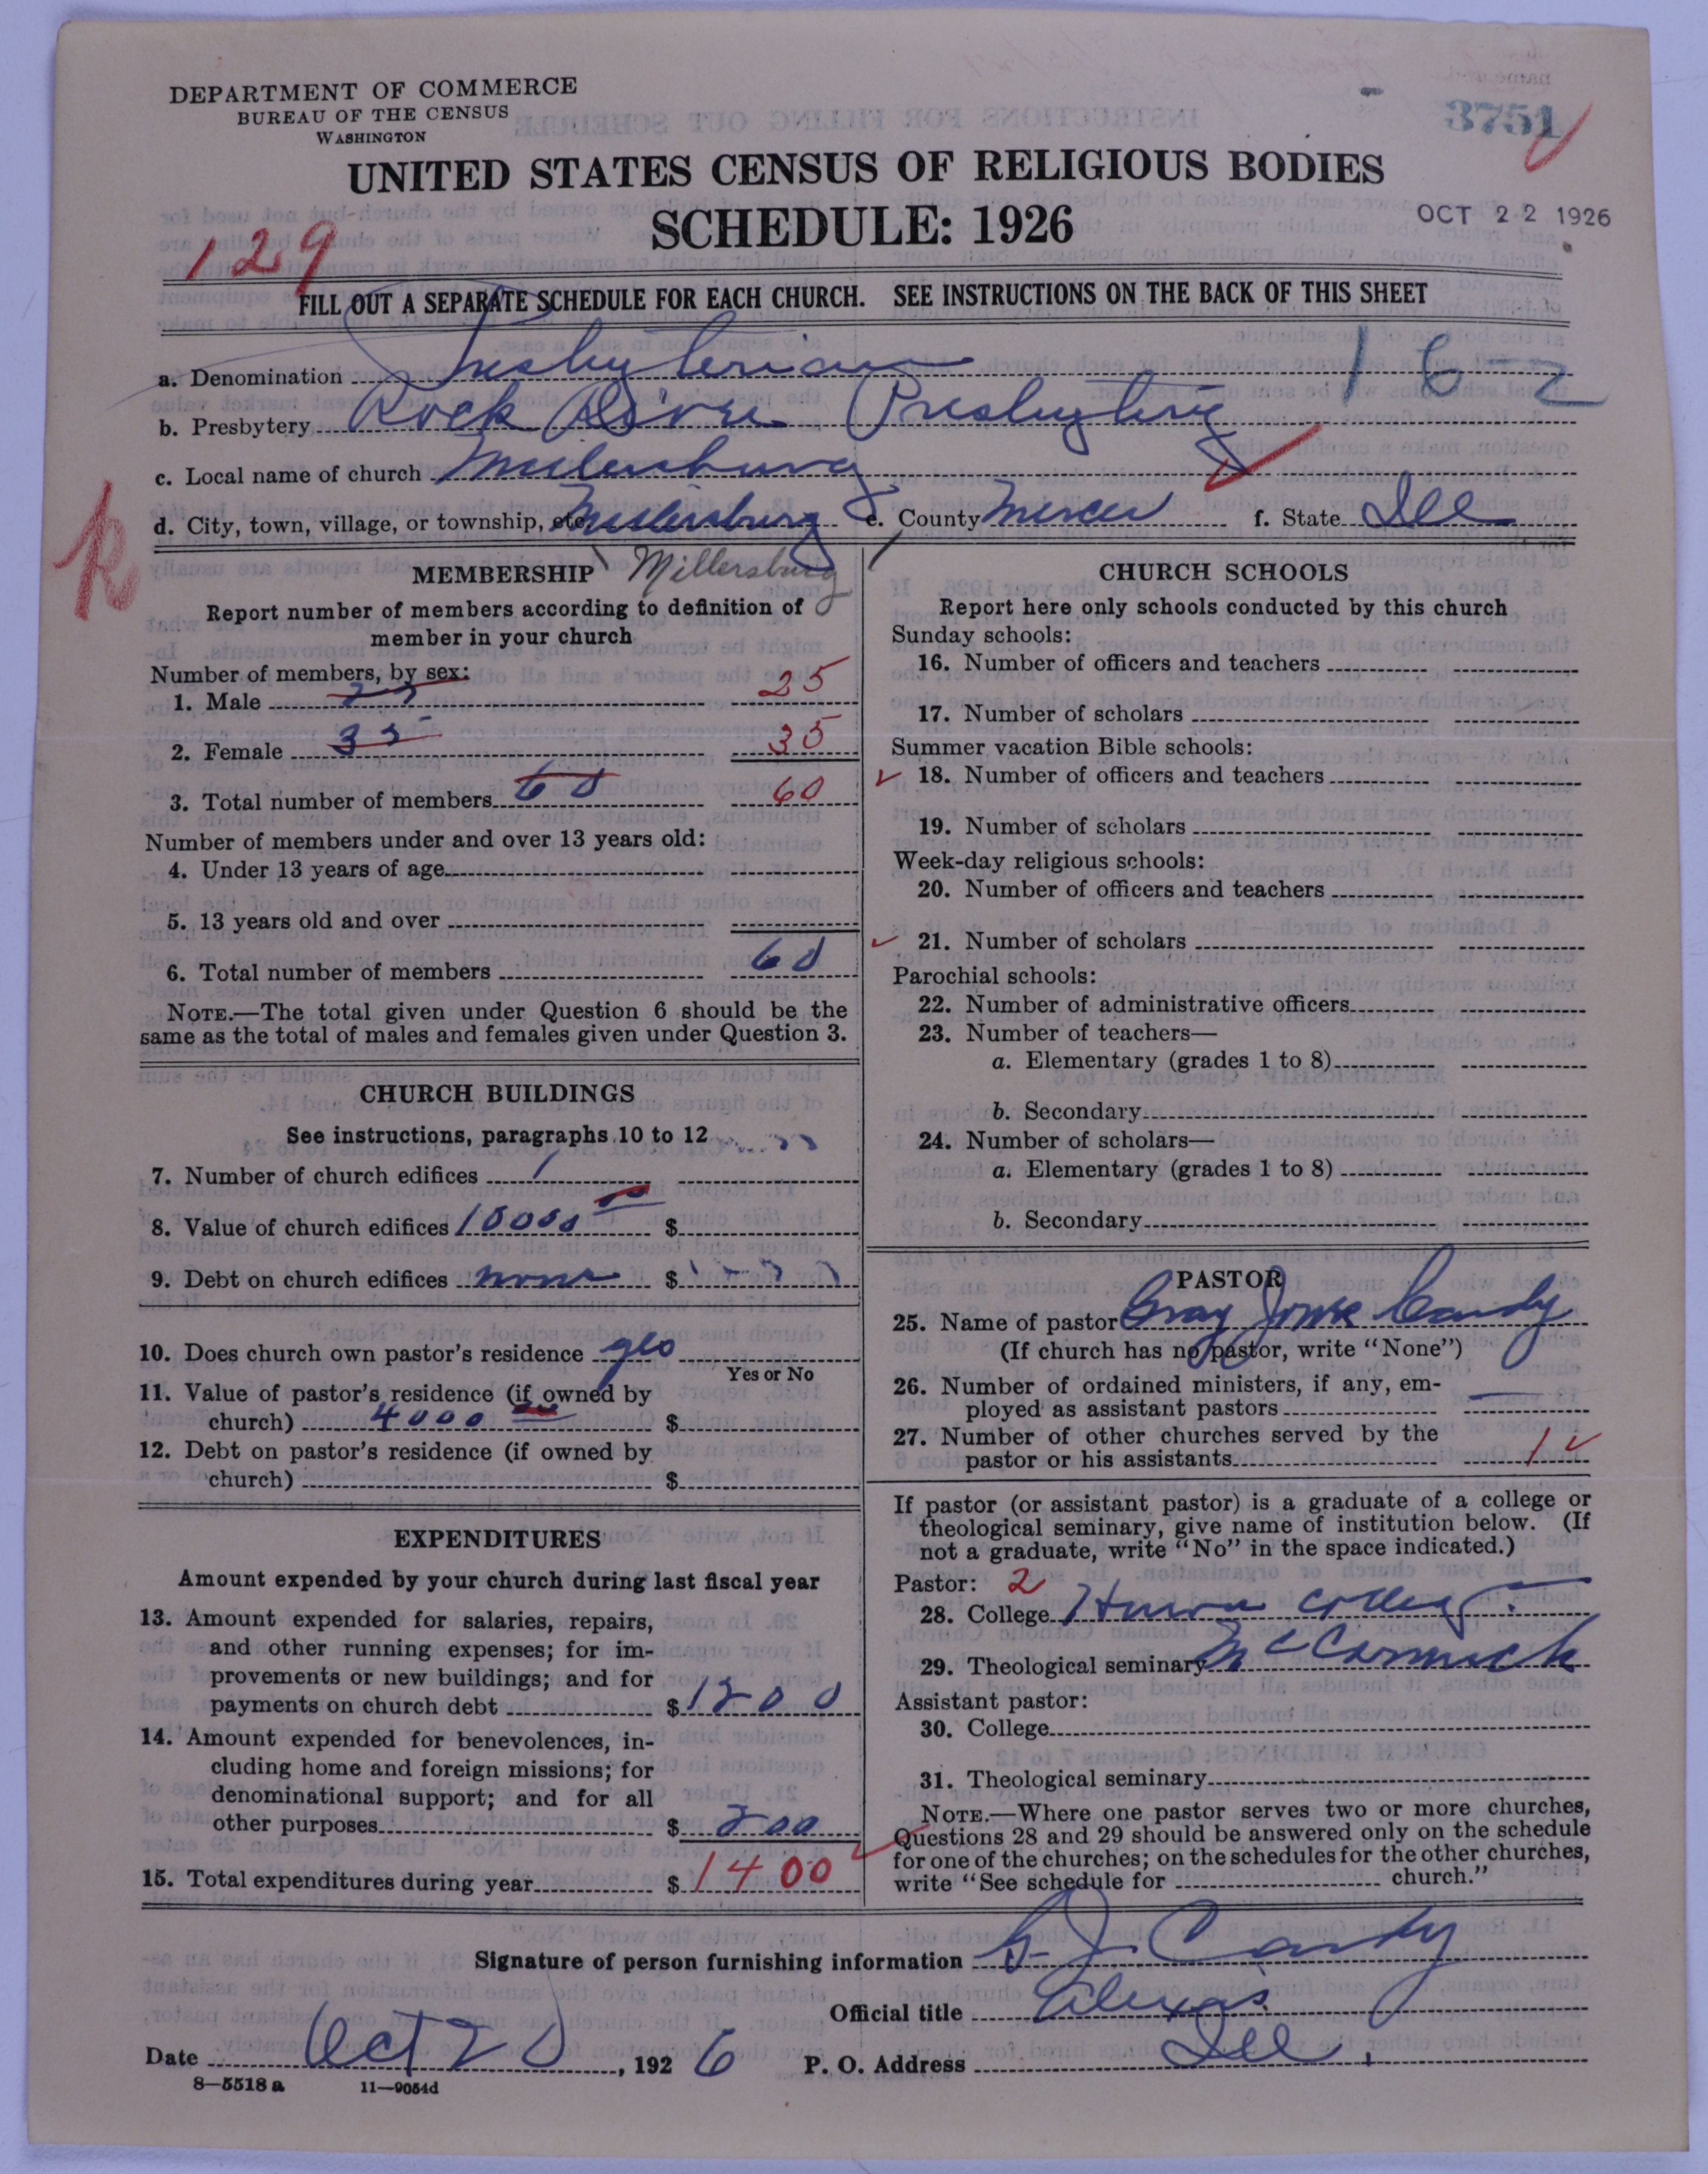 DEPARTMENT OF COMMERCE
BUREAU OF THE CENSUS
WASHINGTON
3751
UNITED STATES CENSUS OF RELIGIOUS BODIES
SCHEDULE: 1926
OCT 22 1926
129
FILL OUT A SEPARATE SCHEDULE FOR EACH CHURCH. SEE INSTRUCTIONS ON THE BACK OF THIS SHEET
a. Denomination Presbyterian 16-2
b. Presbytery Rock River Presbytery
c. Local name of church Millersburg
d. City, town, village, or township, etc. Millersburg e. County Mercer f. State Ill
R
MEMBERSHIP Millersburg
Report number of members according to definition of
member in your church
Number of members, by sex:
1. Male 25 25
2. Female 35 35
3. Total number of members 60 60
Number of members under and over 13 years old:
4. Under 13 years of age
5. 13 years old and over
6. Total number of members 60
NOTE.—The total given under Question 6 should be the
same as the total of males and females given under Question 3.
CHURCH BUILDINGS
See instructions, paragraphs 10 to 12
7. Number of church edifices 1
8. Value of church edifices 10000 00 $
9. Debt on church edifices none $
10. Does church own pastor's residence yes
Yes or No
11. Value of pastor's residence (if owned by
church) 4000 00 $
12. Debt on pastor's residence (if owned by
church) $
EXPENDITURES
Amount expended by your church during last fiscal year
13. Amount expended for salaries, repairs,
and other running expenses; for im-
provements or new buildings; and for
payments on church debt $ 1200
14. Amount expended for benevolences, in-
cluding home and foreign missions; for
denominational support; and for all
other purposes $ 200
15. Total expenditures during year $ 1400
CHURCH SCHOOLS
Report here only schools conducted by this church
Sunday schools:
16. Number of officers and teachers
17. Number of scholars
Summer vacation Bible schools:
18. Number of officers and teachers
19. Number of scholars
Week-day religious schools:
20. Number of officers and teachers
21. Number of scholars
Parochial schools:
22. Number of administrative officers
23. Number of teachers—
a. Elementary (grades 1 to 8)
b. Secondary
24. Number of scholars—
a. Elementary (grades 1 to 8)
b. Secondary
PASTOR
25. Name of pastor Gray Candy
(If church has no pastor, write "None")
26. Number of ordained ministers, if any, em-
ployed as assistant pastors
27. Number of other churches served by the
pastor or his assistants 1
If pastor (or assistant pastor) is a graduate of a college or
theological seminary, give name of institution below. (If
not a graduate, write "No" in the space indicated.)
Pastor: 2
28. College Huron College
29. Theological seminary McCormick
Assistant pastor:
30. College
31. Theological seminary
NOTE.—Where one pastor serves two or more churches,
Questions 28 and 29 should be answered only on the schedule
for one of the churches; on the schedules for the other churches,
write "See schedule for church."
Signature of person furnishing information G J Candy
Official title Alexis
Date Oct 20, 1926 P. O. Address Ill.
8—5518 a 11—9054d